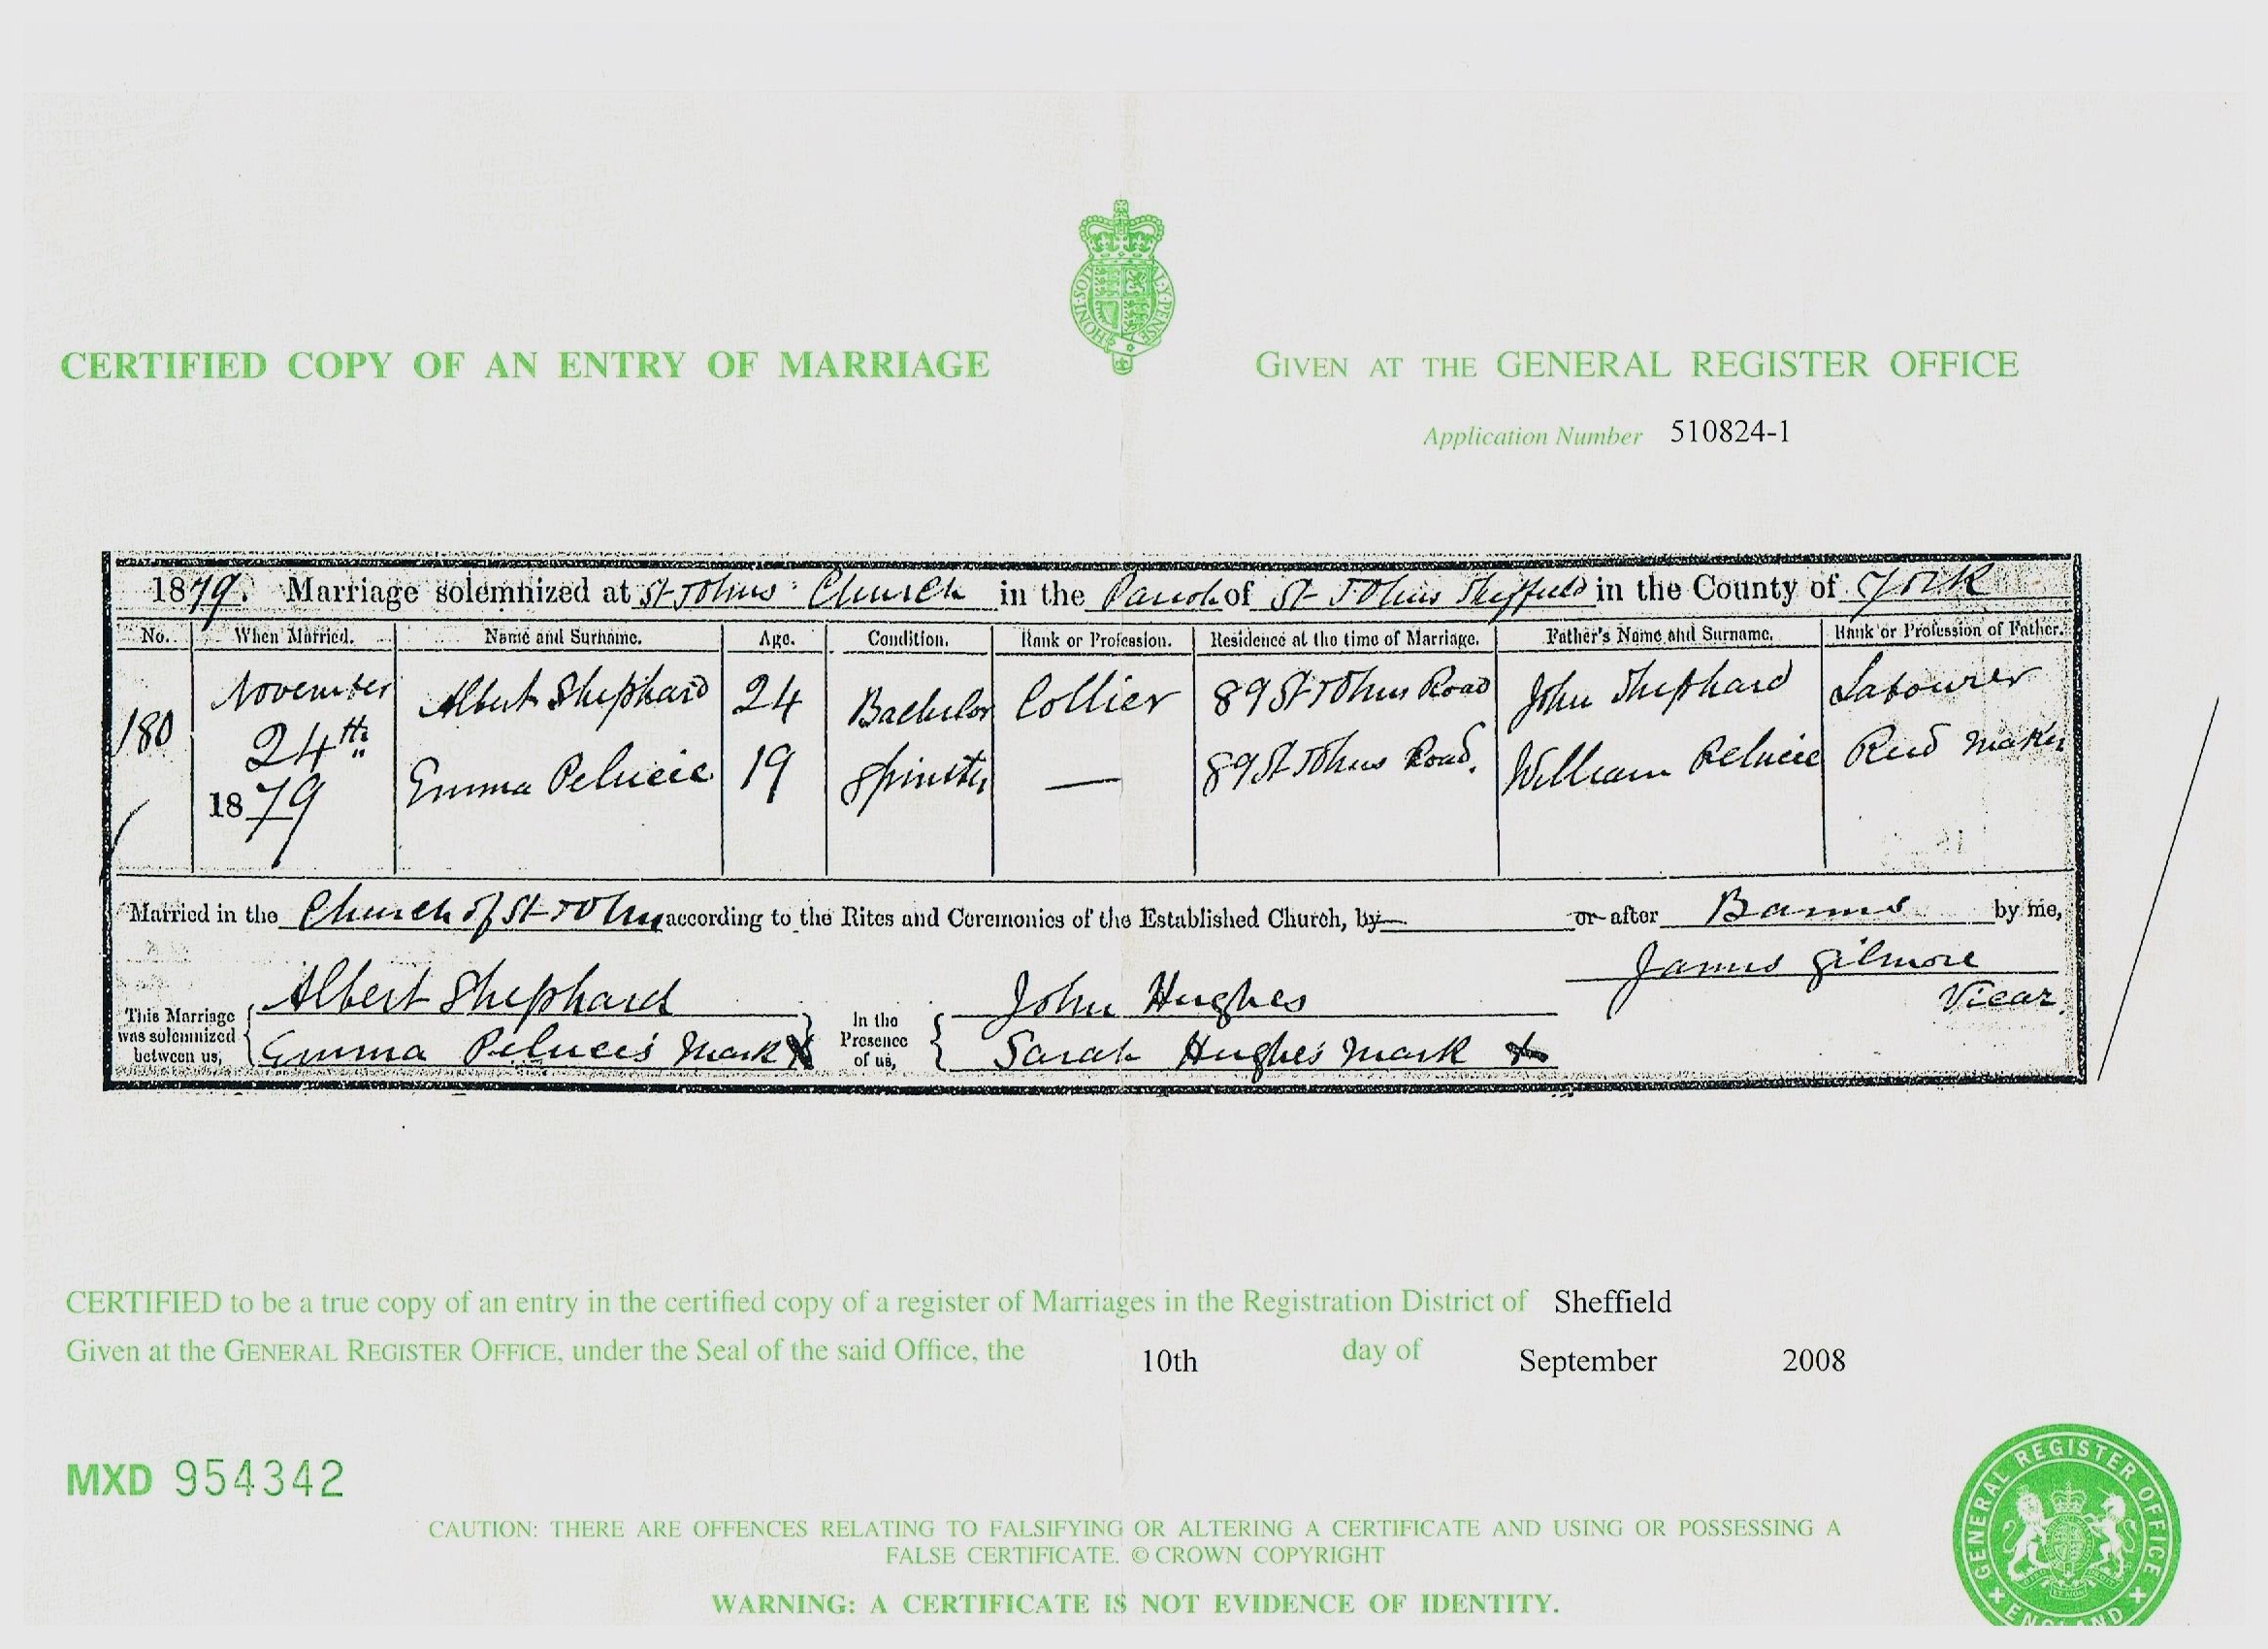 HONI·SOI AL·Y·PENSE
CERTIFIED COPY OF AN ENTRY OF MARRIAGE
GIVEN AT THE GENERAL REGISTER OFFICE
Application Number 510824-1
1879. Marriage solemnized at St Johns Church in the Parish of St Johns Sheffield in the County of York
No. When Married. Name and Surname. Age. Condition. Rank or Profession. Residence at the time of Marriage. Father's Name and Surname. Rank or Profession of Father.
180 November 24th 1879 Albert Shephard 24 Bachelor Collier 89 St Johns Road John Shephard Labourer
Emma 19 Spinster — 89 St Johns Road. William maker
Married in the Church of St John according to the Rites and Ceremonies of the Established Church, by or after Banns by me,
James Gilmore
Vicar.
This Marriage was solemnized between us,
Albert Shephard
Emma mark X
In the Presence of us,
John Hughes
Sarah Hughes mark X
CERTIFIED to be a true copy of an entry in the certified copy of a register of Marriages in the Registration District of Sheffield
Given at the GENERAL REGISTER OFFICE, under the Seal of the said Office, the 10th day of September 2008
MXD 954342
CAUTION: THERE ARE OFFENCES RELATING TO FALSIFYING OR ALTERING A CERTIFICATE AND USING OR POSSESSING A
FALSE CERTIFICATE. © CROWN COPYRIGHT
WARNING: A CERTIFICATE IS NOT EVIDENCE OF IDENTITY.
GENERAL REGISTER OFFICE
ENGLAND